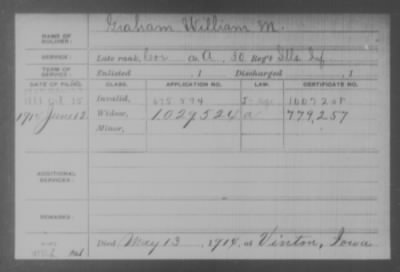 Graham William M.
NAME OF SOLDIER:
SERVICE: Late rank, Cor Co. A, 30 Reg't Ills Inf
TERM OF SERVICE: Enlisted , 1 Discharged , 1
DATE OF FILING. CLASS. APPLICATION NO. LAW. CERTIFICATE NO.
Invalid,
1914 June 12 Widow, 1029524 a 779,257
Minor,
ADDITIONAL SERVICES:
REMARKS:
Died May 13, 1914, at Vinton, Iowa